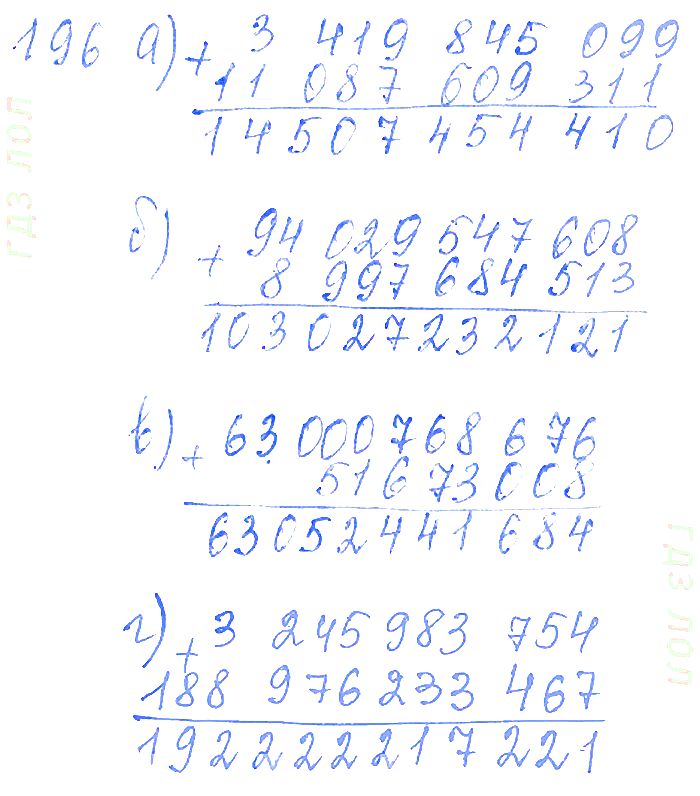 196 а) + 3 419 845 099
11 087 609 311
14 507 454 410
б) + 94 029 547 608
8 997 684 513
103 027 232 121
в) + 63 000 768 676
51 673 008
63 052 441 684
г) + 3 245 983 754
188 976 233 467
192 222 217 221
гдз лол
гдз лол